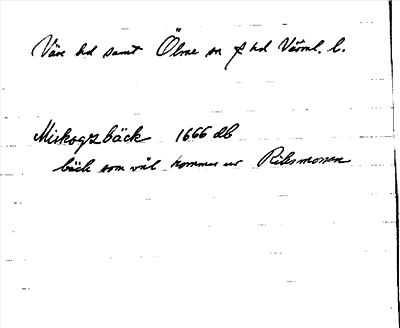 Väse hd samt Ölme sn o hd Värml. l.
Miskogzbäck 1666 db
bäck som väl kommer ur Riksmossen